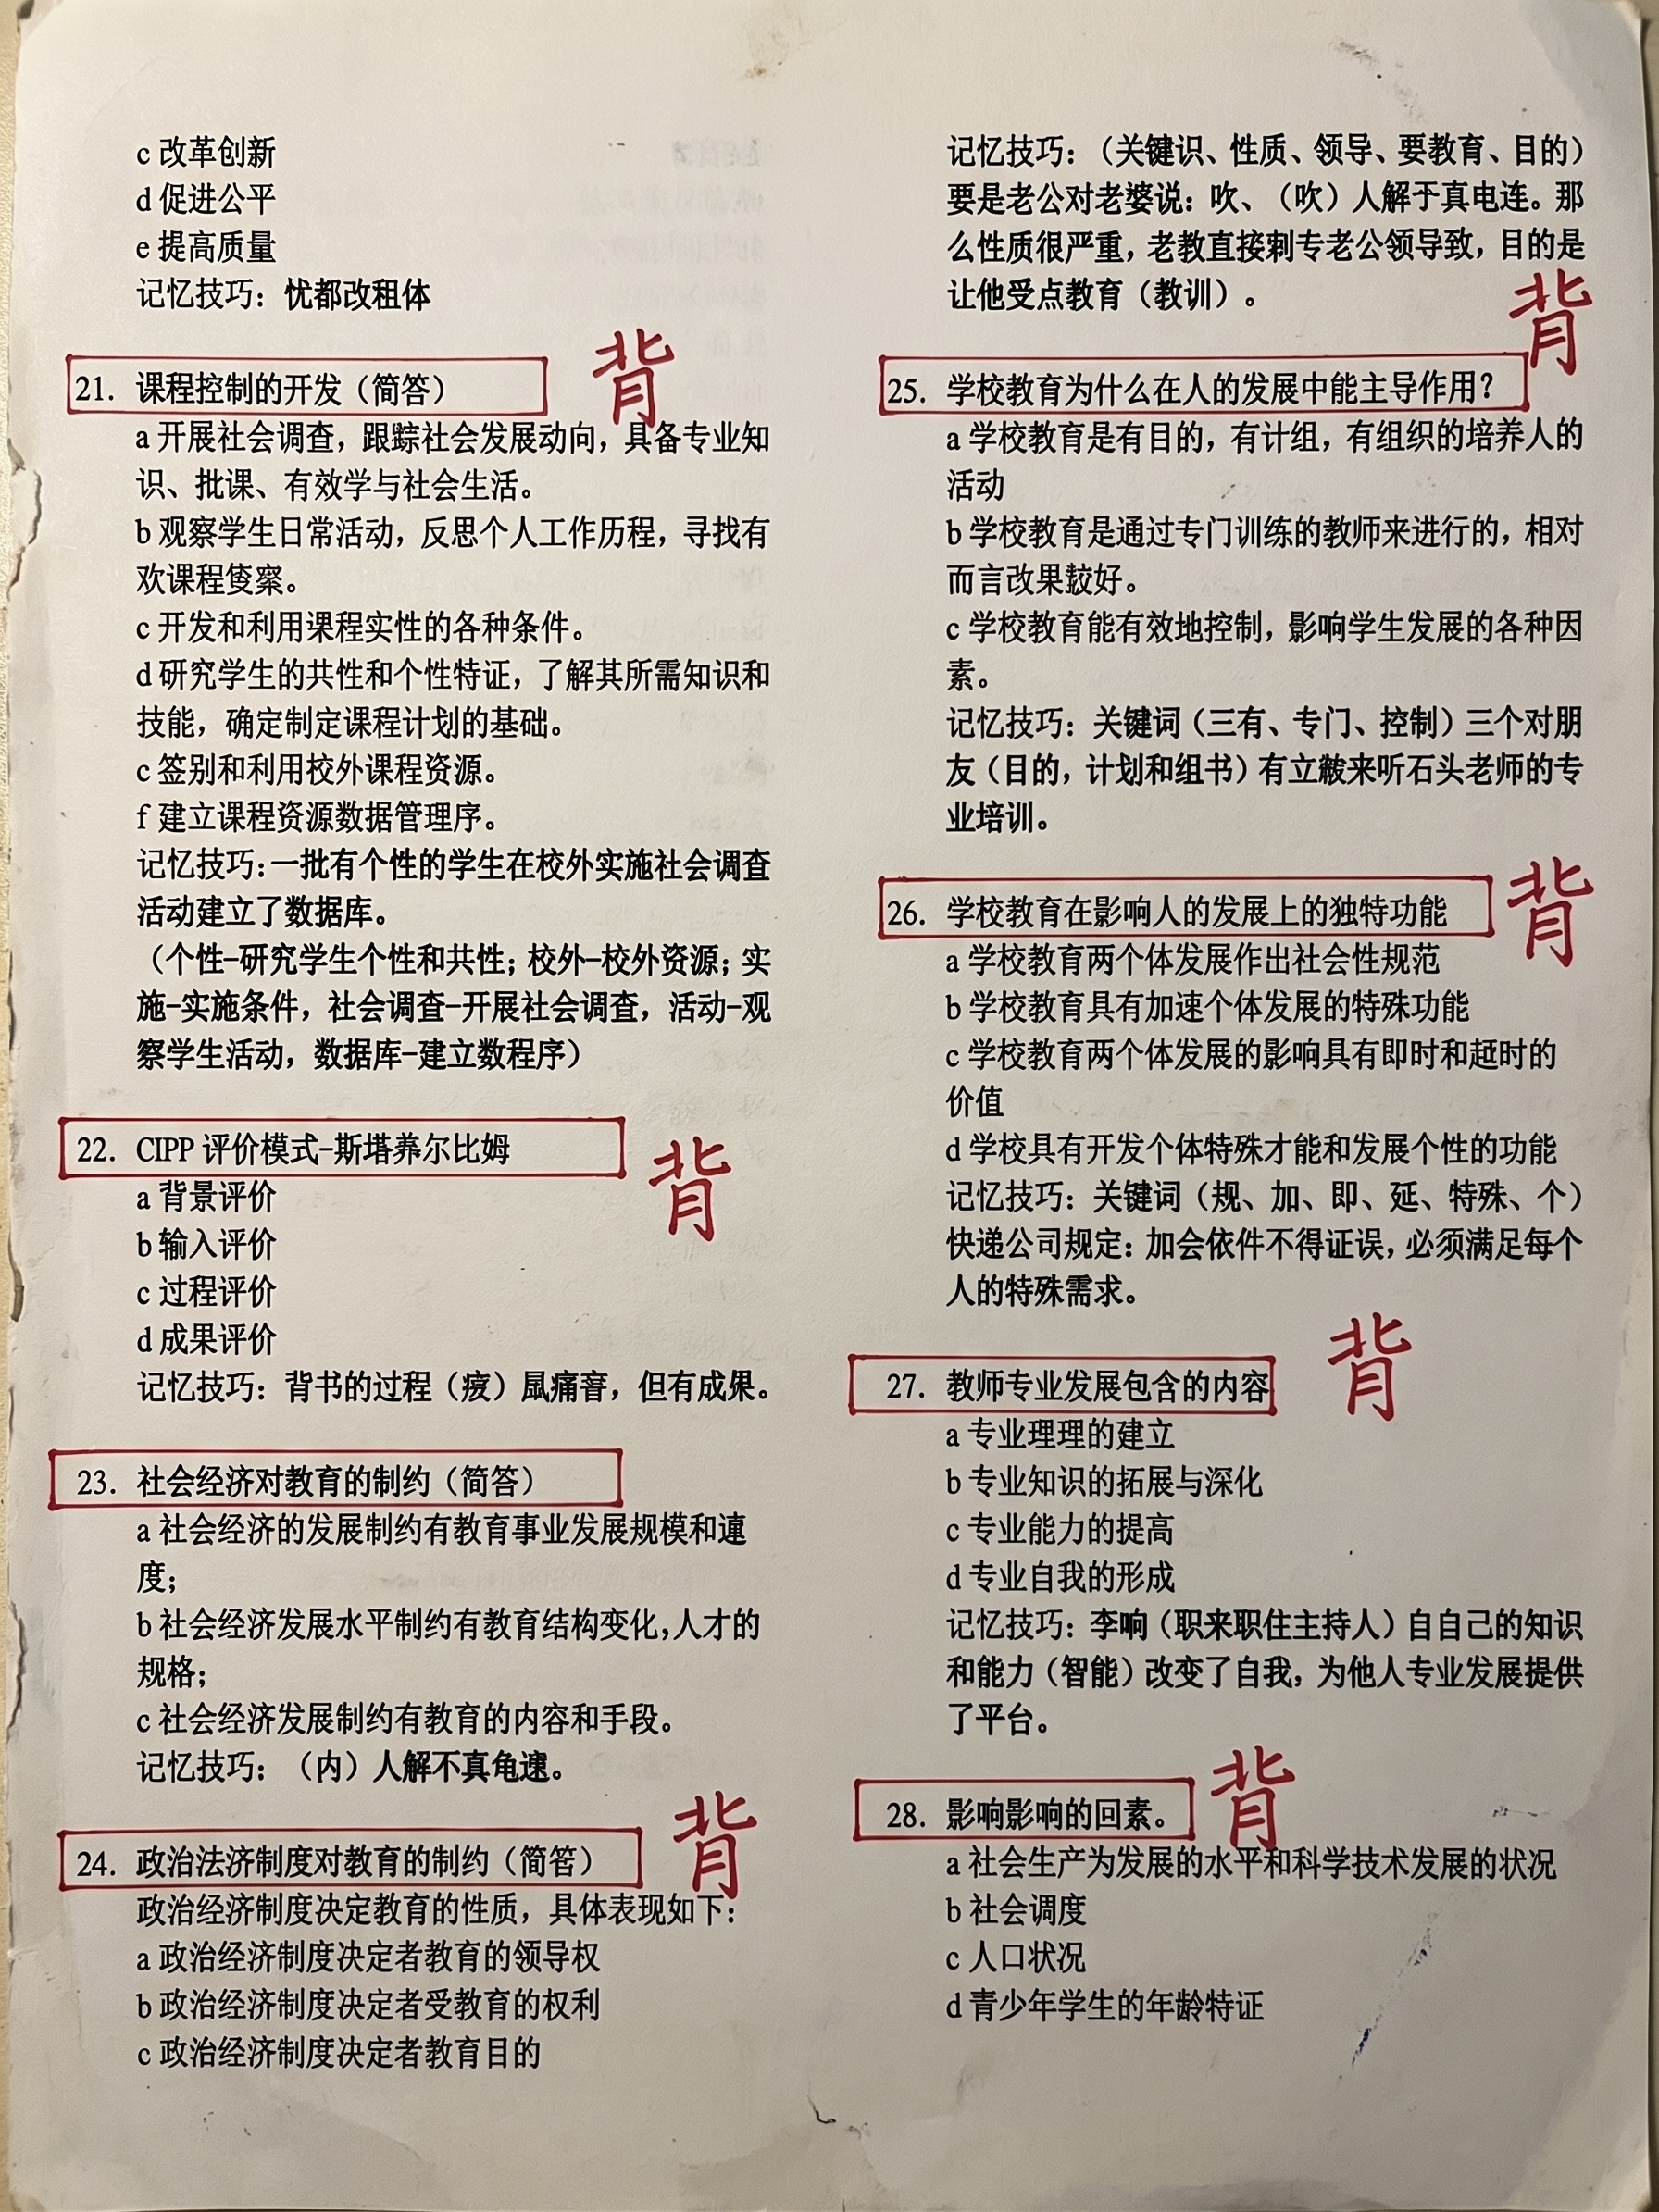 c 改革创新
d 促进公平
e 提高质量
记忆技巧：忧都改租体
21. 课程控制的开发（简答）
背
a 开展社会调查，跟踪社会发展动向，具备专业知
识、批课、有效学与社会生活。
b 观察学生日常活动，反思个人工作历程，寻找有
欢课程
c 开发和利用课程实性的各种条件。
d 研究学生的共性和个性特证，了解其所需知识和
技能，确定制定课程计划的基础。
c 签别和利用校外课程资源。
f 建立课程资源数据管理序。
记忆技巧：一批有个性的学生在校外实施社会调查
活动建立了数据库。
（个性-研究学生个性和共性；校外-校外资源；实
施-实施条件，社会调查-开展社会调查，活动-观
察学生活动，数据库-建立数程序）
22. CIPP 评价模式-斯塔养尔比姆
背
a 背景评价
b 输入评价
c 过程评价
d 成果评价
记忆技巧：背书的过程（疲）痛，但有成果。
23. 社会经济对教育的制约（简答）
a 社会经济的发展制约有教育事业发展规模和
度；
b 社会经济发展水平制约有教育结构变化，人才的
规格；
c 社会经济发展制约有教育的内容和手段。
记忆技巧：（内）人解不真龟速。
24. 政治法济制度对教育的制约（简答）
背
政治经济制度决定教育的性质，具体表现如下：
a 政治经济制度决定者教育的领导权
b 政治经济制度决定者受教育的权利
c 政治经济制度决定者教育目的
记忆技巧：（关键识、性质、领导、要教育、目的）
要是老公对老婆说：吹、（吹）人解于真电连。那
么性质很严重，老教直接剩专老公领导致，目的是
让他受点教育（教训）。
背
25. 学校教育为什么在人的发展中能主导作用？
a 学校教育是有目的，有计组，有组织的培养人的
活动
b 学校教育是通过专门训练的教师来进行的，相对
而言改果较好。
c 学校教育能有效地控制，影响学生发展的各种因
素。
记忆技巧：关键词（三有、专门、控制）三个对朋
友（目的，计划和组书）有立来听石头老师的专
业培训。
26. 学校教育在影响人的发展上的独特功能
背
a 学校教育两个体发展作出社会性规范
b 学校教育具有加速个体发展的特殊功能
c 学校教育两个体发展的影响具有即时和时的
价值
d 学校具有开发个体特殊才能和发展个性的功能
记忆技巧：关键词（规、加、即、延、特殊、个）
快递公司规定：加会依件不得证误，必须满足每个
人的特殊需求。
27. 教师专业发展包含的内容
背
a 专业理理的建立
b 专业知识的拓展与深化
c 专业能力的提高
d 专业自我的形成
记忆技巧：李响（职来职住主持人）自自己的知识
和能力（智能）改变了自我，为他人专业发展提供
了平台。
28. 影响影响的回素。
背
a 社会生产为发展的水平和科学技术发展的状况
b 社会调度
c 人口状况
d 青少年学生的年龄特证